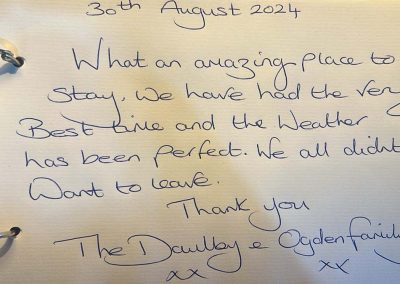 30th August 2024
What an amazing place to
stay. We have had the Very
Best time and the Weather
has been perfect. We all didn't
Want to leave.
Thank you
The Daulby & Ogden family
xx xx